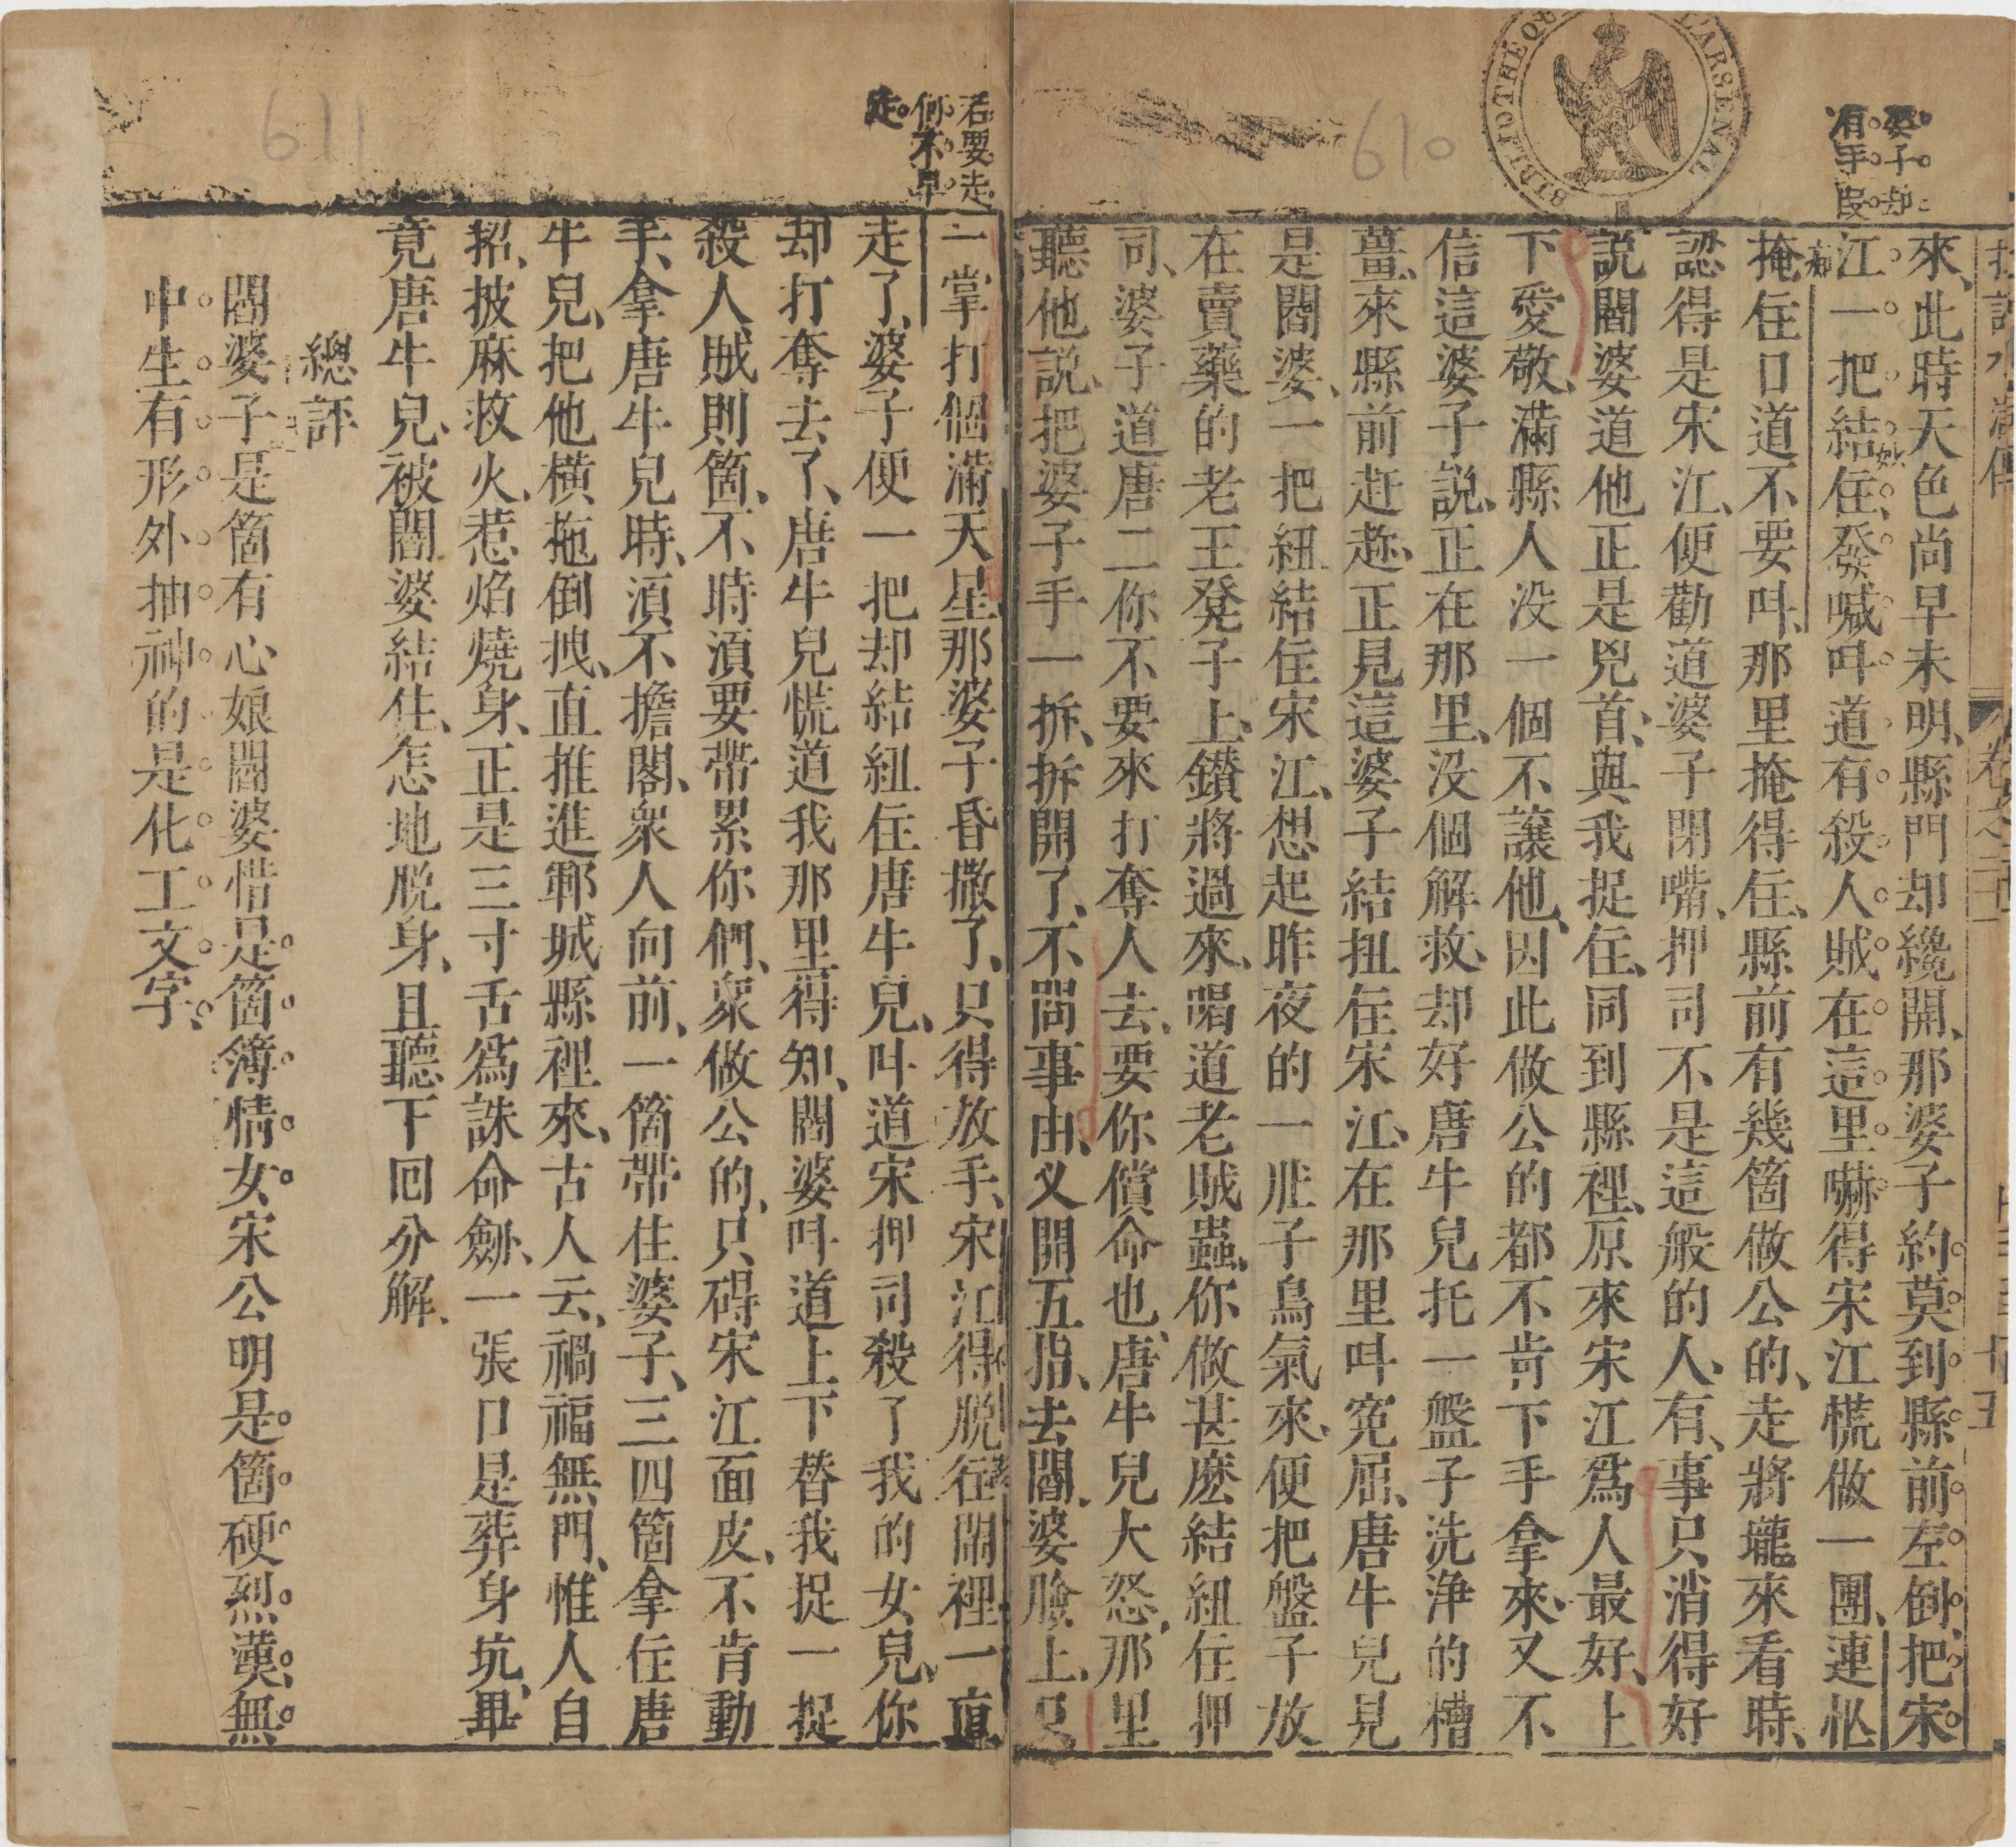 婆子却
有手段
來、此時天色尚早未明、縣門却纔開、那婆子約莫到縣前左側、把宋
江一把結住、發喊叫道有殺人賊在這里嚇得宋江慌做一團、連忙
妙
掩住口道不要叫、那里掩得住、縣前有幾箇做公的、走將攏來看時、
認得是宋江、便勸道婆子閉嘴、押司不是這般的人、有事只消得好
說閻婆道他正是兇首、與我捉住、同到縣裡、原來宋江爲人最好、上
下愛敬、滿縣人没一個不讓他、因此做公的都不肯下手拿來、又不
信這婆子說、正在那里、没個解救、却好唐牛兒托一盤子洗淨的糟
薑、來縣前赶趂、正見這婆子結扭住宋江、在那里叫寃屈、唐牛兒見
是閻婆、一把紐結住宋江、想起昨夜的一肚子鳥氣來、便把盤子放
在賣藥的老王凳子上、鑚將過來、喝道老賊蟲、你做甚麽結紐住押
司、婆子道唐二你不要來打奪人去、要你償命也、唐牛兒大怒、那里
聽他說、把婆子手一拆、拆開了、不問事由、叉開五指、去閻婆臉上、只
若要走
何不早
走
一掌打個滿天星、那婆子昏撒了、只得放手、宋江得脫、往閙裡一直
走了、婆子便一把却結紐住唐牛兒、叫道宋押司殺了我的女兒、你
却打奪去了、唐牛兒慌道我那里得知、閻婆叫道上下替我捉一捉
殺人賊則箇、不時湏要帶累你們、衆做公的、只碍宋江面皮、不肯動
手、拿唐牛兒時、湏不擔閣、衆人向前、一箇帶住婆子、三四箇拿住唐
牛兒、把他橫拖倒拽、直推進鄆城縣裡來、古人云、禍福無門、惟人自
招、披麻救火、惹焰燒身、正是三寸舌爲誅命劍、一張口是葬身坑、畢
竟唐牛兒、被閻婆結住、怎地脫身、且聽下回分解、
總評
閻婆子是箇有心娘閻婆惜是箇薄情女宋公明是箇硬烈漢、無
中生有形外抽神的是化工文字、
卷之二十一
BIBLIOTHÈQUE
L'ARSENAL
610
611